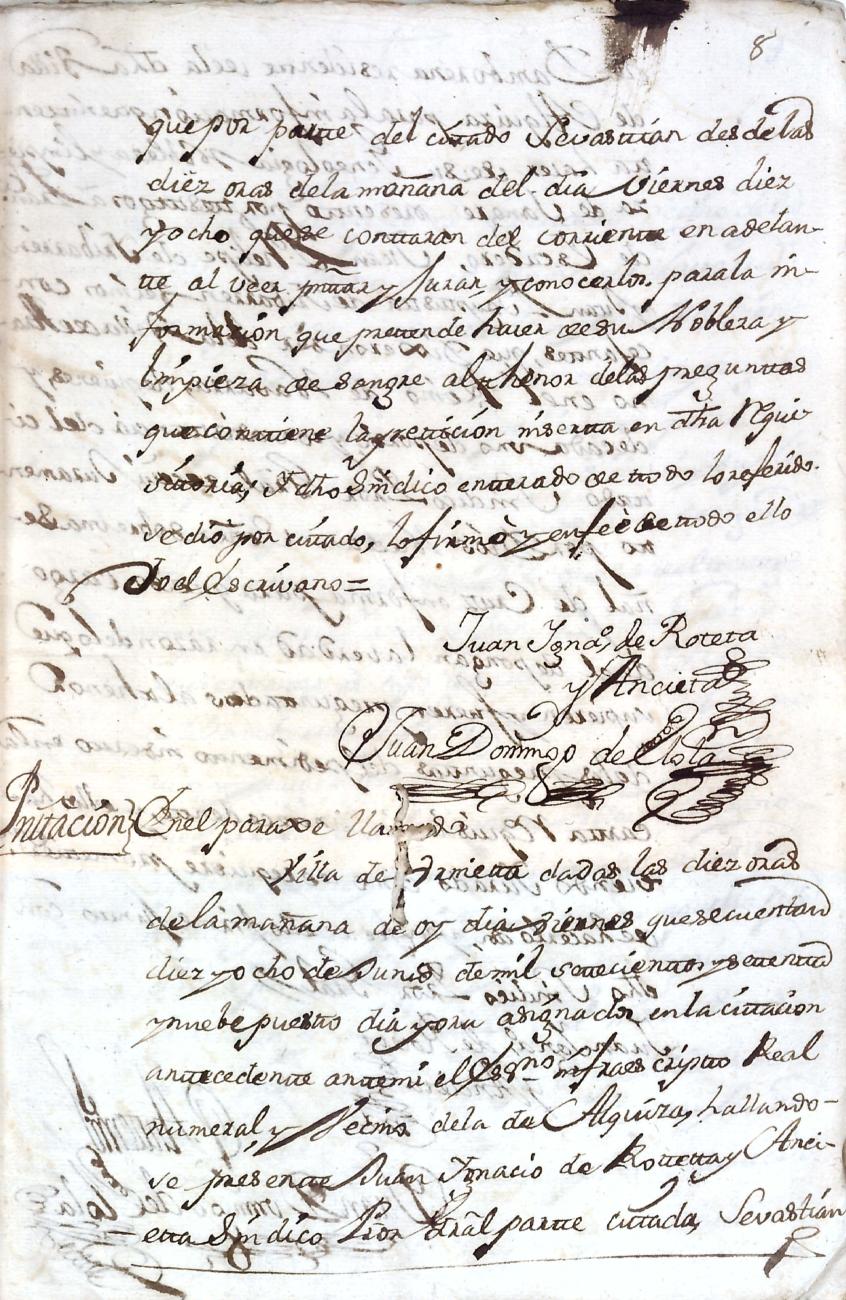 8
que por parte del citado Sevastian desde las
diez oras dela mañana del dia Viernes diez
y ocho que se contaran del corriente en adelan-
te al veer, pntar y Jurar, y conocerlos. para la in-
formazion, que pretende hacer de su Nobleza y
limpieza de sangre al thenor delas preguntas
que contiene la peticion inserta en dha Requi-
sitoria; Y dho Sindico enterado de ttodo lo referido
se dio por citado, lo firmò y en feè de ttodo ello
Yo el Escrivano =
Juan Ygnaº, de Roteta
y Ancieta
Juan Domingo de
Pntación Enel paraxe llamado
Villa de Urnieta dadas las diez oras
de la mañana de oy dia Viernes que se cuentan
diez y ocho de Junio de mil setecientos y setenta
y nuebe puesto dia y ora asignados en la citacion
antecedente ante mi el Essno infraescripto Real
numeral, y Vecino dela de Alquiza, hallando-
se presente Juan Ygnacio de Rotetta y Anci-
etta Sindico Pror Gral parte citada, Sevastian